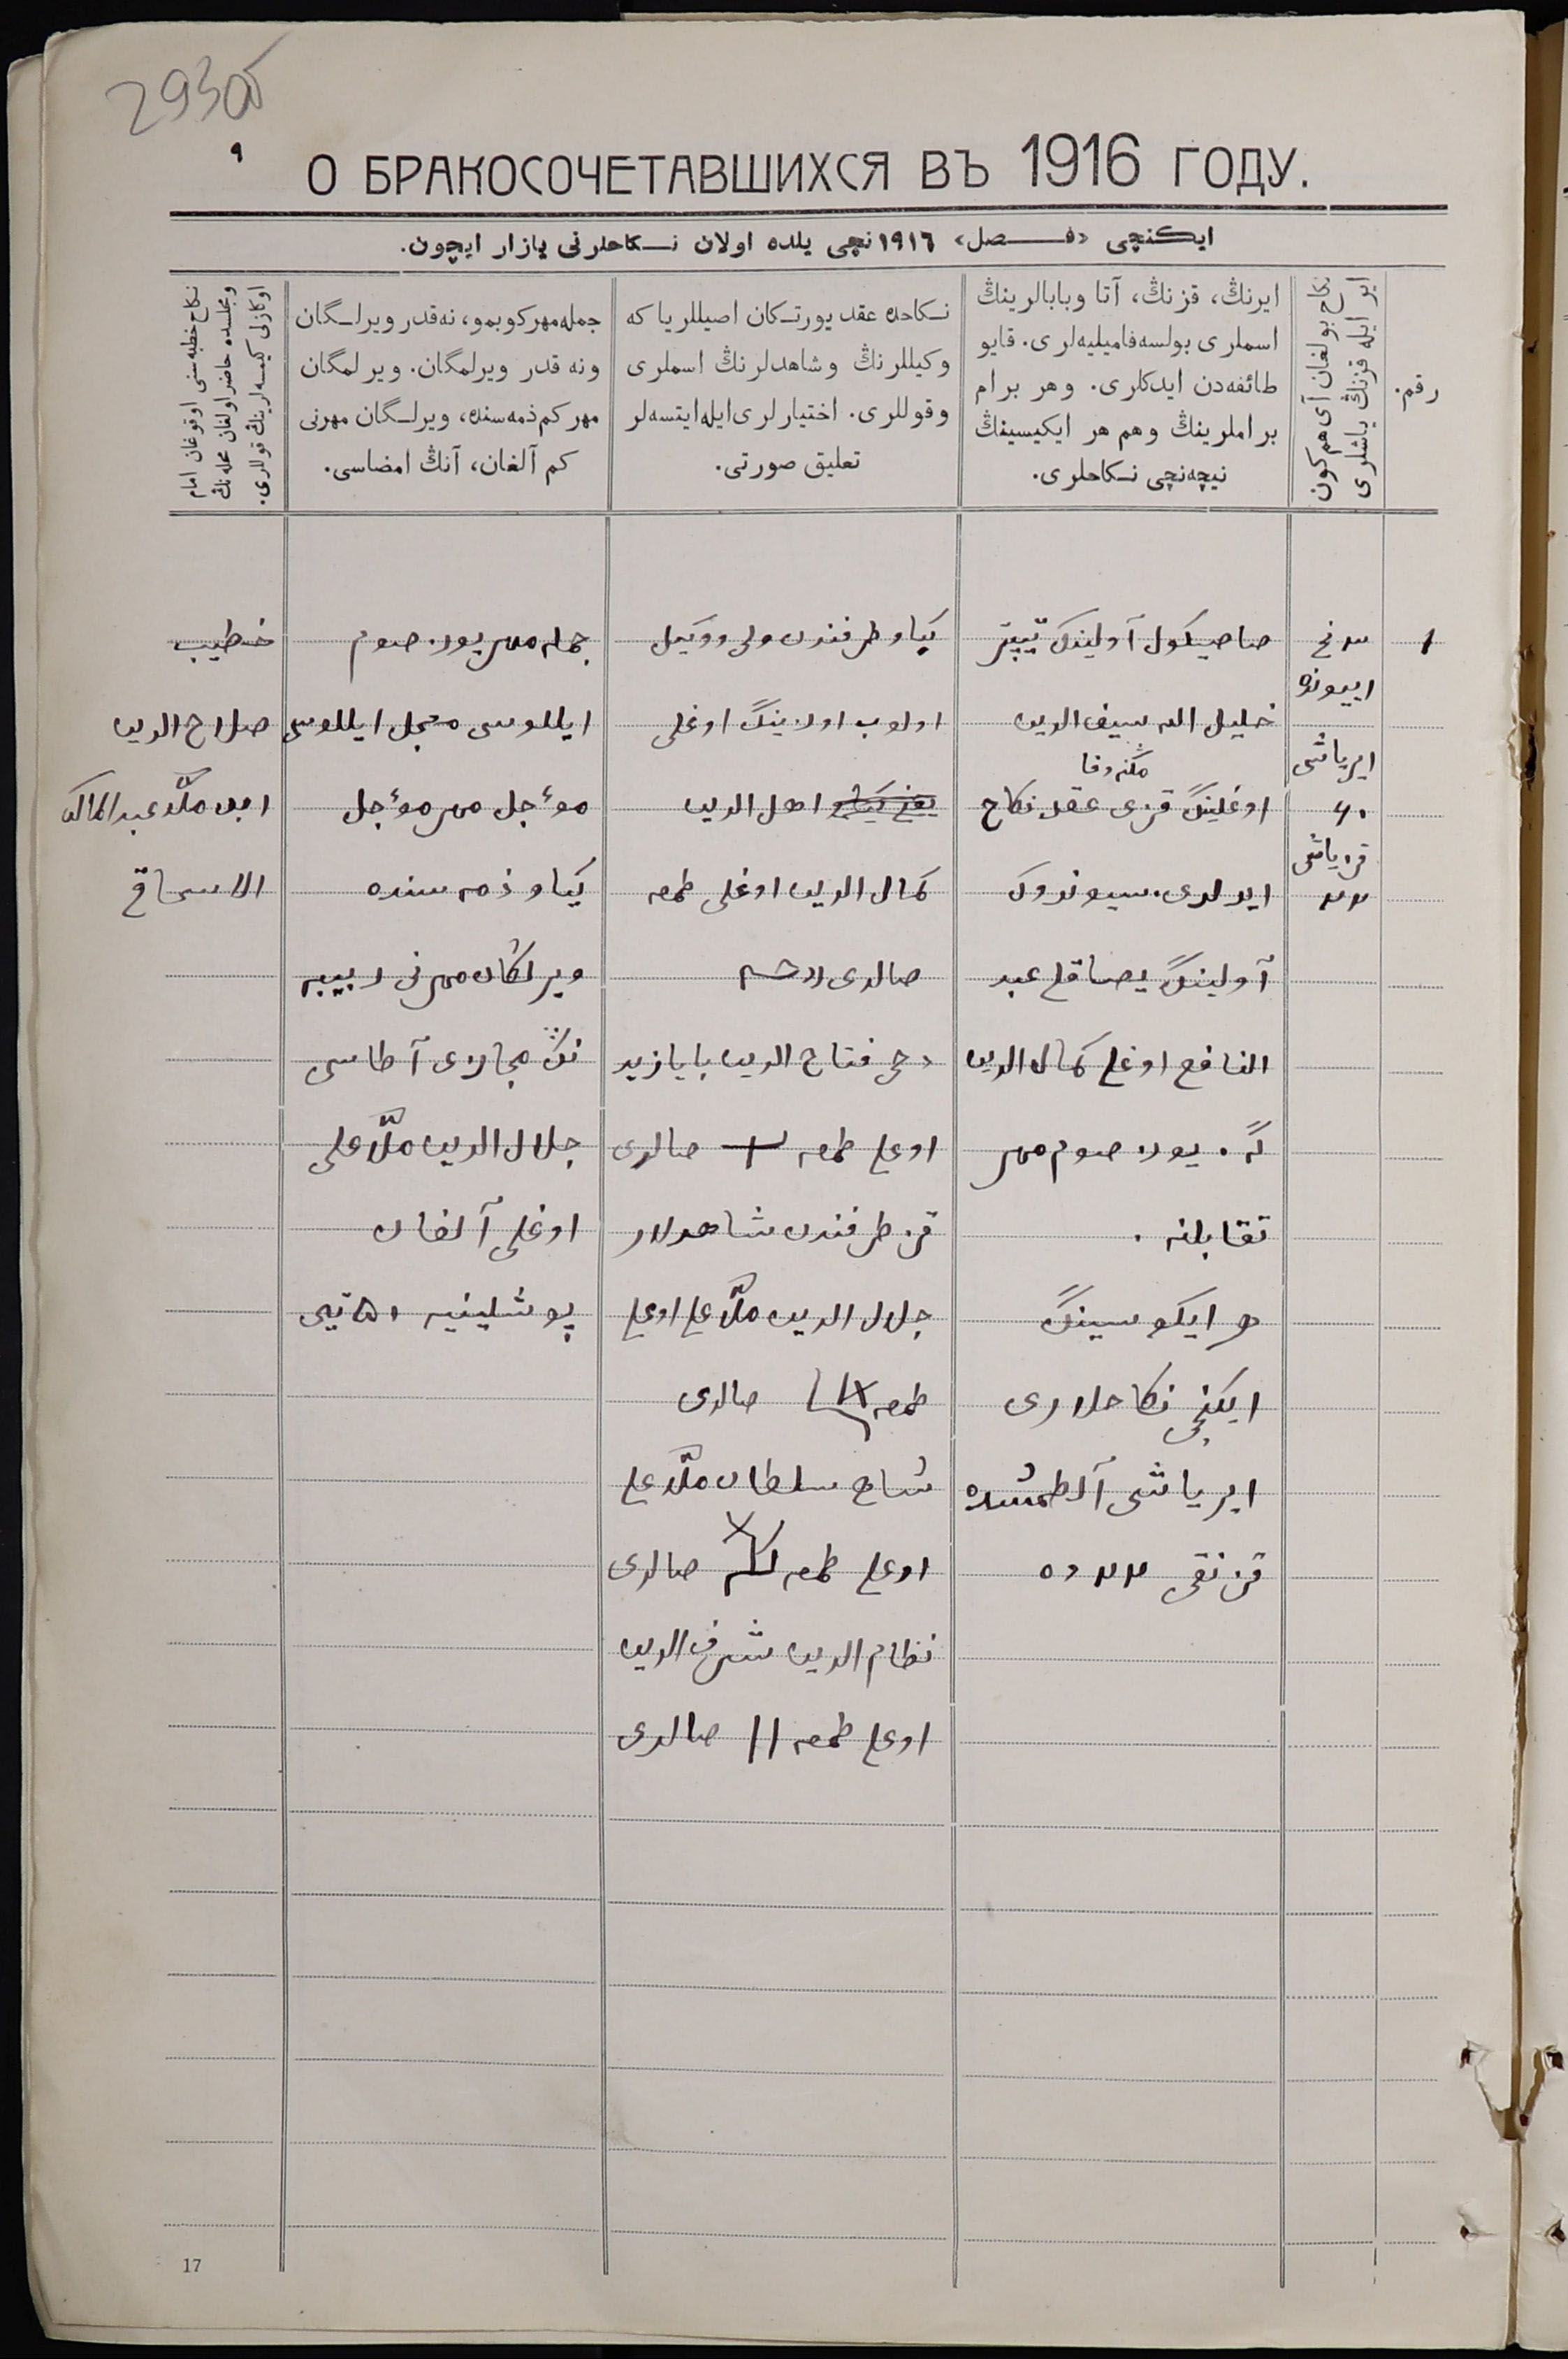 293об
٩
О БРАКОСОЧЕТАВШИХСЯ ВЪ 1916 ГОДУ.
ایکنچی «فصل» ١٩١٦ نچی یلده اولان نکاحلرنی یازار ایچون.
رقم.
نکاح بولغان آی هم کون
ایر ایله قزنڭ یاشلری
ایرنڭ، قزنڭ، آتا وبابالرینڭ
اسملری بولسه فامیلیه‌لری. قایو
طائفه‌دن ایدکلری. وهر برام
براملرینڭ وهم هر ایکیسینڭ
نیچه‌نچی نکاحلری.
نکاحده عقد یورتکان اصیللر یا که
وکیللرنڭ وشاهدلرنڭ اسملری
وقوللری. اختیارلری ایله ایتسه‌لر
تعلیق صورتی.
جمله مهر کوبمو، نه‌قدر ویرلگان
ونه قدر ویرلمگان. ویرلمگان
مهر کم ذمه‌سنده، ویرلگان مهرنی
کم آلغان، آنڭ امضاسی.
نکاح خطبه‌سنی اوقوغان امام
ومجلسده حاضر اولغان محله‌نڭ
اوکازلی کیمسه‌لرینڭ قوللری.
١
٣ نچی
ایر یاشی
٦٠
قز یاشی
٢٢
آولینڭ تیپتر
خلیل الله سیف الدین
اوغلینڭ قزی عقد نکاح
ایدلدی.
آولینڭ عبد
النافع اوغلی کمال الدین
گه. یوز صوم مهر
تقابلنه.
هر ایکوسینڭ
ایکنچی نکاحلاری
ایر یاشی آلطمشده
قزنقی ٢٢ ده
کیاو طرفندن ولی ووکیل
اولوب اولاینڭ اوغلی
اهل الدین
کمال الدین اوغلی طمغه
صالدی
دخی فتاح الدین بایازید
اوغلی طمغه صالدی
قز طرفندن شاهدلار
جلال الدین ملا علی اوغلی
طمغه صالدی
شاه سلطان ملا علی
اوغلی طمغه صالدی
نظام الدین شرف الدین
اوغلی طمغه || صالدی
جمله مهر یوز صوم
ایللوسی معجل ایللوسی
مؤجل مهر مؤجل
کیاو ذمه سنده
ویرلکان مهرنی
نڭ آطاسی
جلال الدین ملا علی
اوغلی آلغان
خطیب
صلاح الدین
ابن ملا عبد المالک
الاسحاق
17